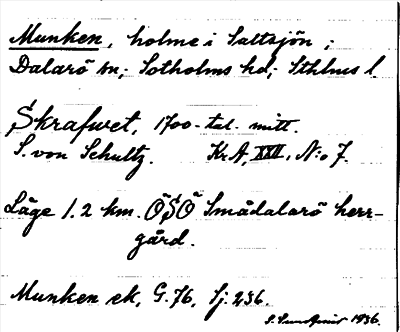 Munken, holme i Saltsjön ;
Dalarö sn; Sotholms hd; Sthlms l.
Skrafwet, 1700-tal. mitt.
S. von Schultz. Kr.A, XXII, N:o 7.
Läge 1.2 km. ÖSÖ Smådalarö herr-
gård.
Munken ek, G.76, Sj. 236.
S. 1936.